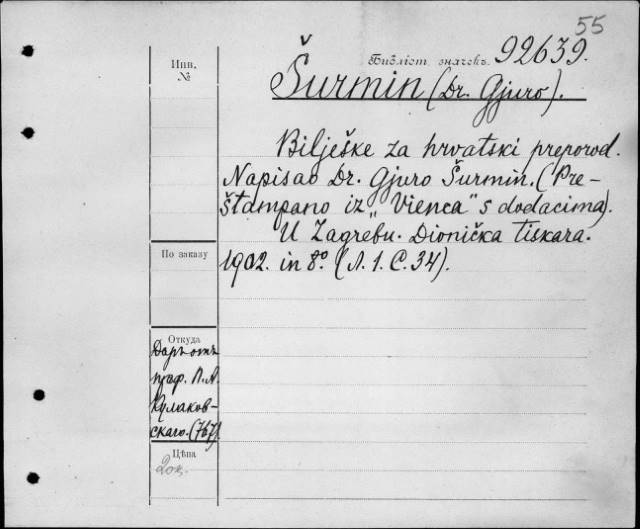 55
Инв.
№
Библіот. значекъ. 92639.
Šurmin (Dr. Gjuro).
Bilješke za hrvatski preporod.
Napisao Dr. Gjuro Šurmin. (Pre-
štampano iz „Vienca“ s dodacima).
U Zagrebu. Dionička tiskara.
1902. in 8º. (Л. 1. С. 34).
По заказу
Откуда
Даръ отъ
проф. П. А.
Кулаков-
скаго. (767).
Цѣна